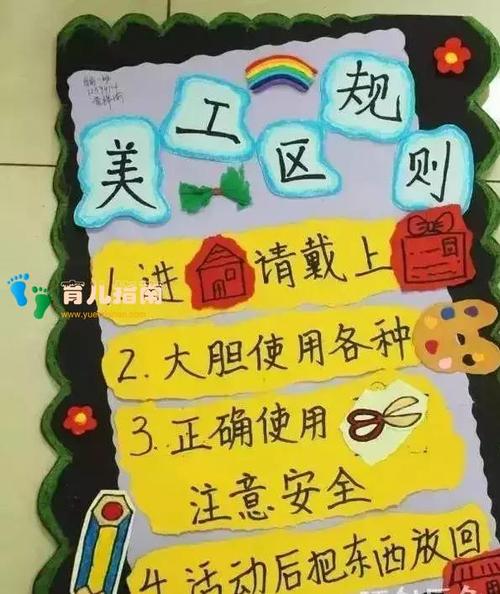 美工区规则
1.进 请戴上
2.大胆使用各种
3.正确使用
注意安全
4.活动后把东西放回
育儿指南